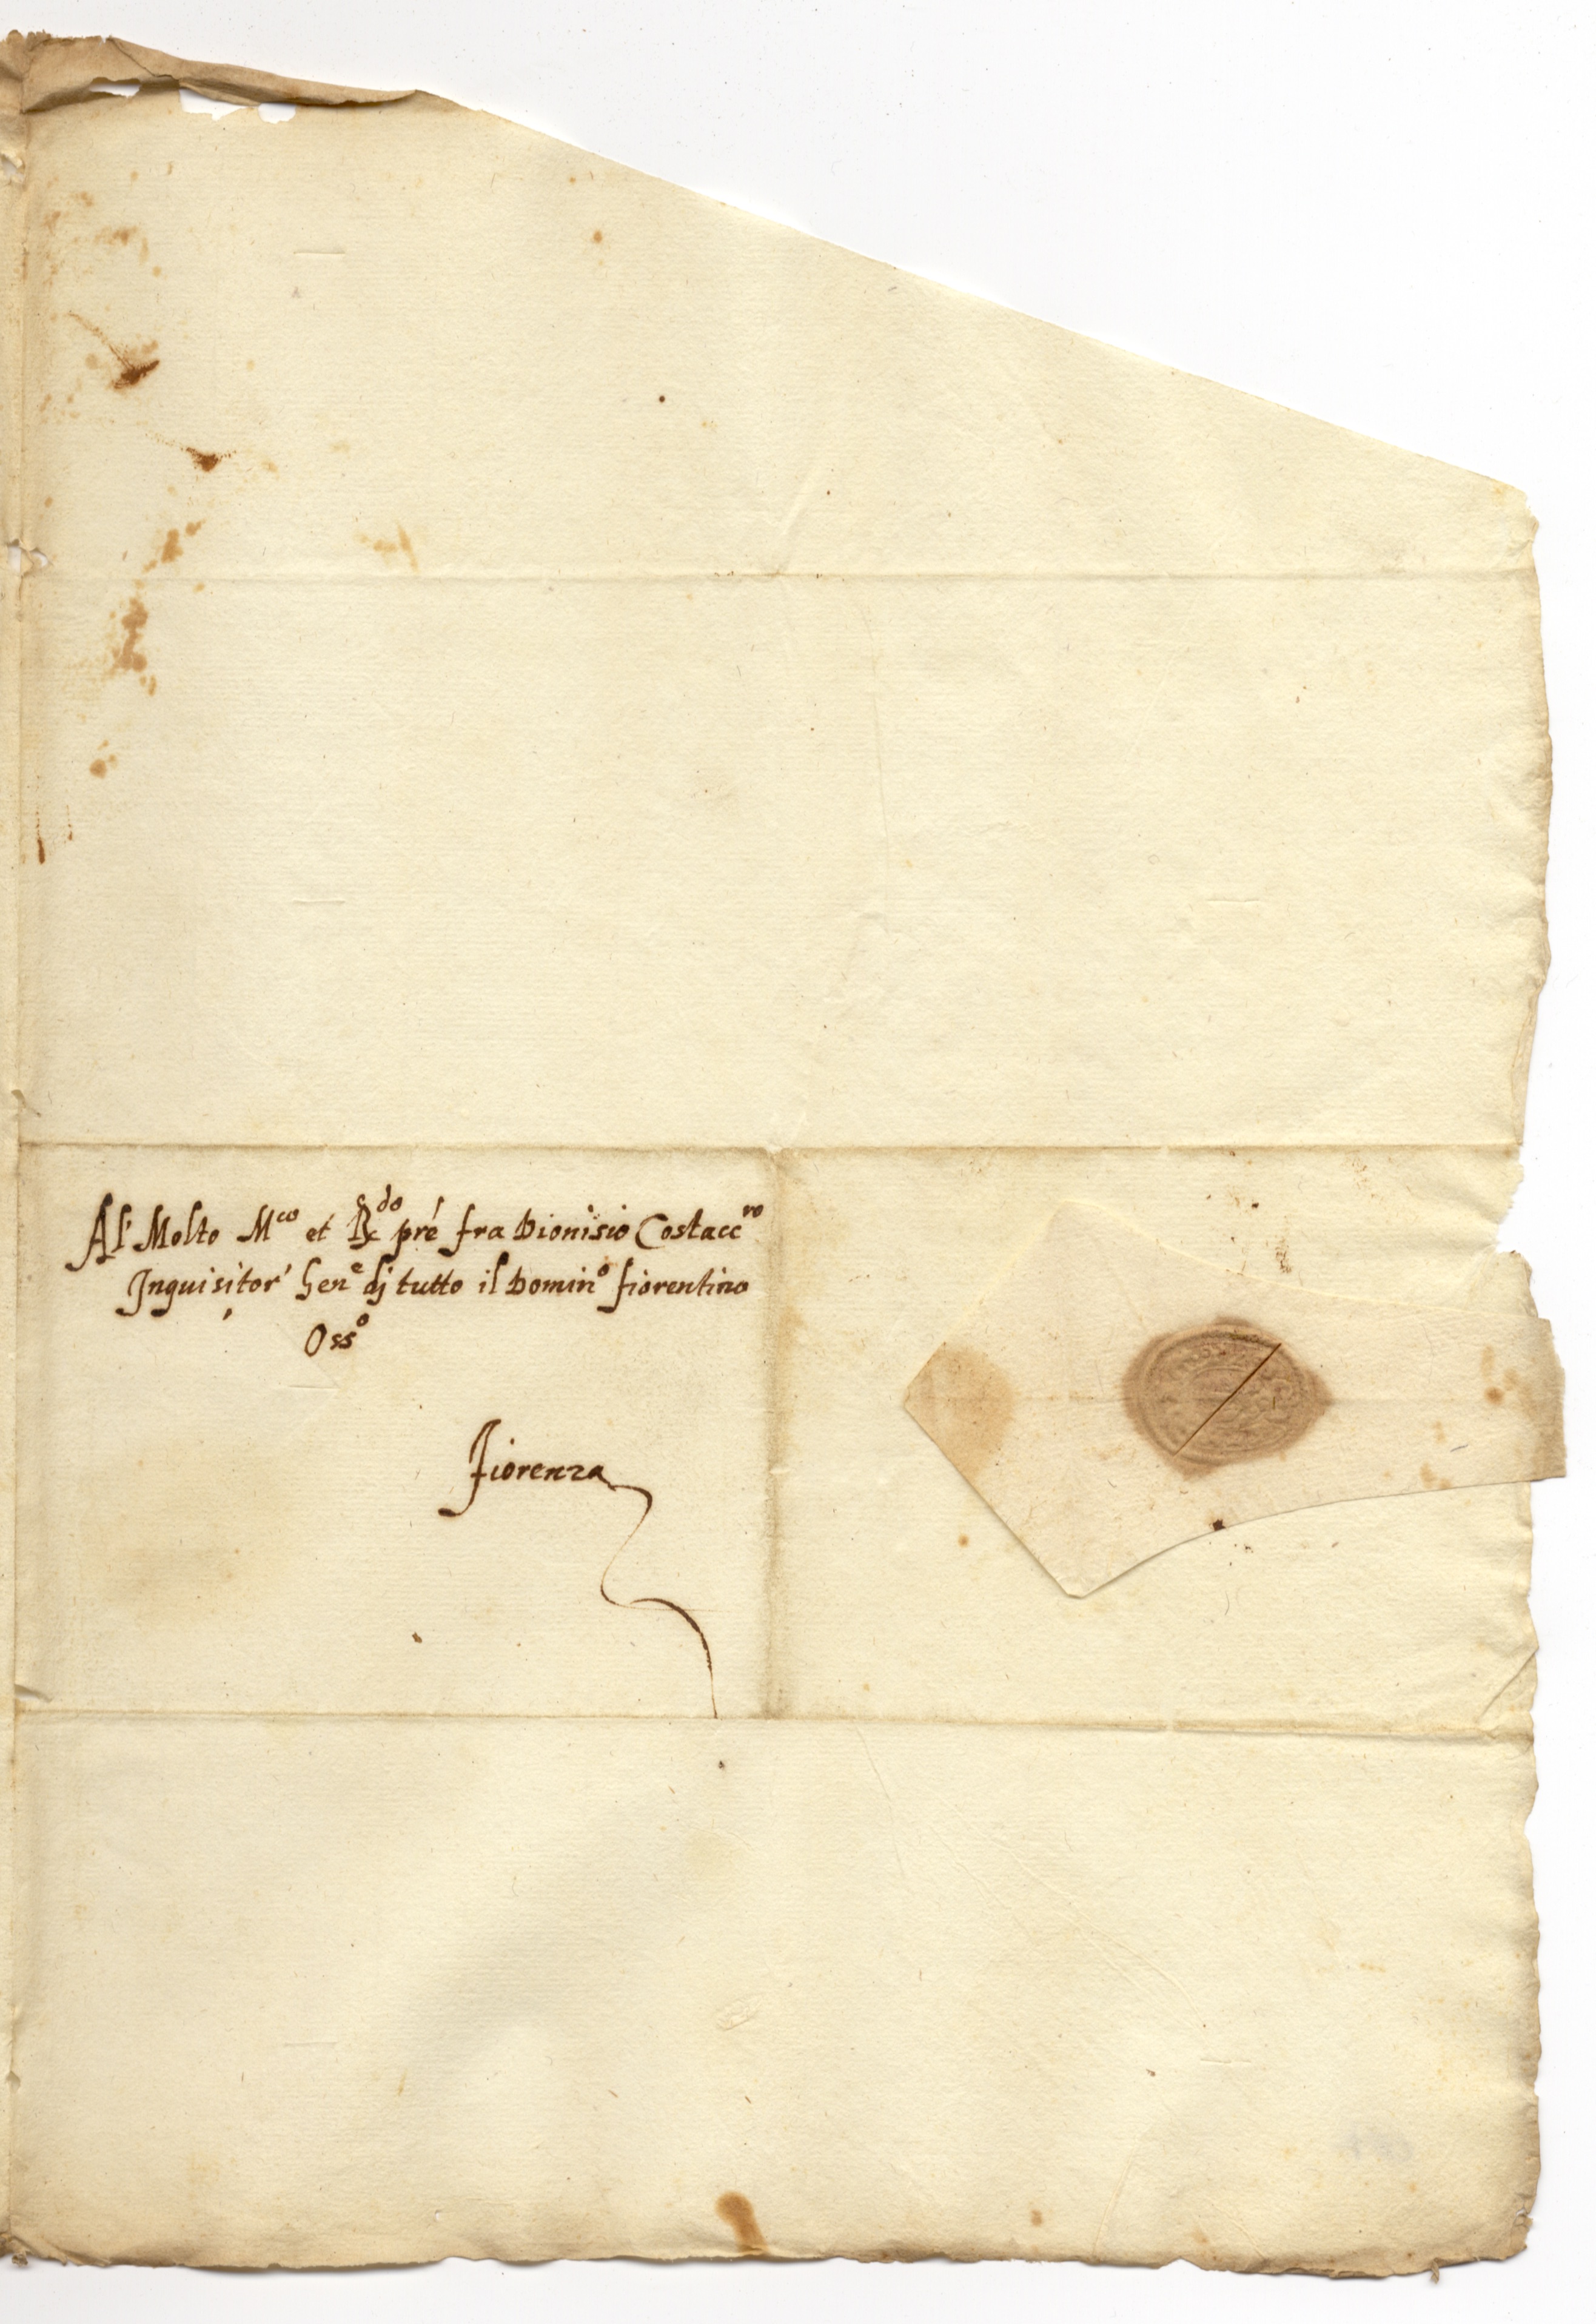 Al' Molto M^co et R^do pre' fra Dionisio Costacc^ro
Inquisitor' Gen^e dj tutto il Domin^o fiorentino
Oss^o
Fiorenza